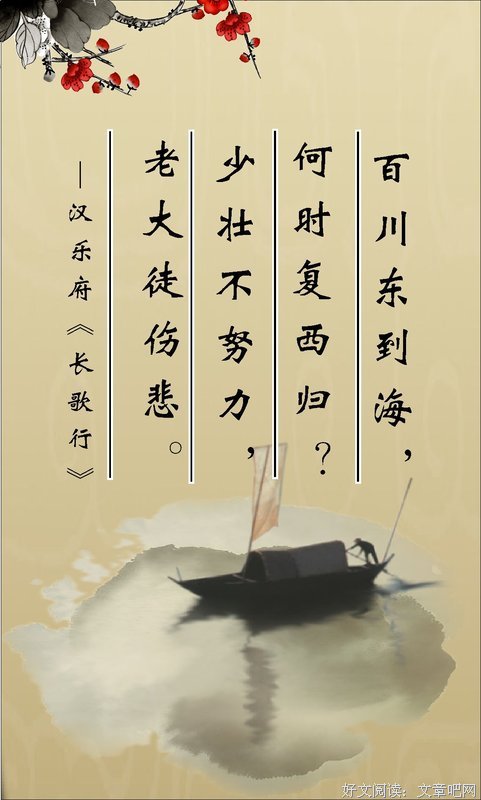 百川东到海，
何时复西归？
少壮不努力，
老大徒伤悲。
—汉乐府《长歌行》
好文阅读：文章吧网